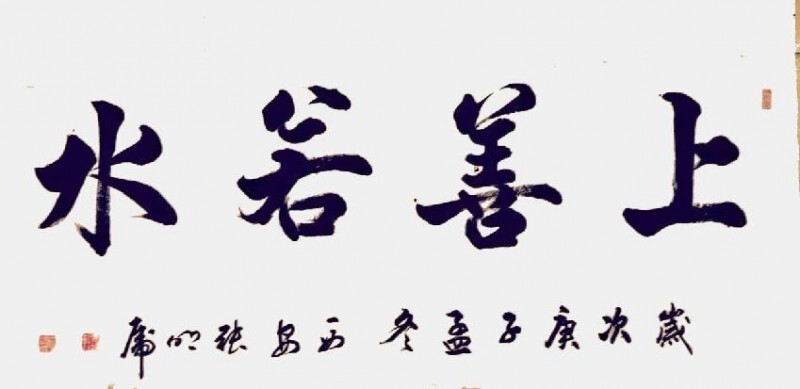 上善若水
歲次庚子孟冬 西安張明虎